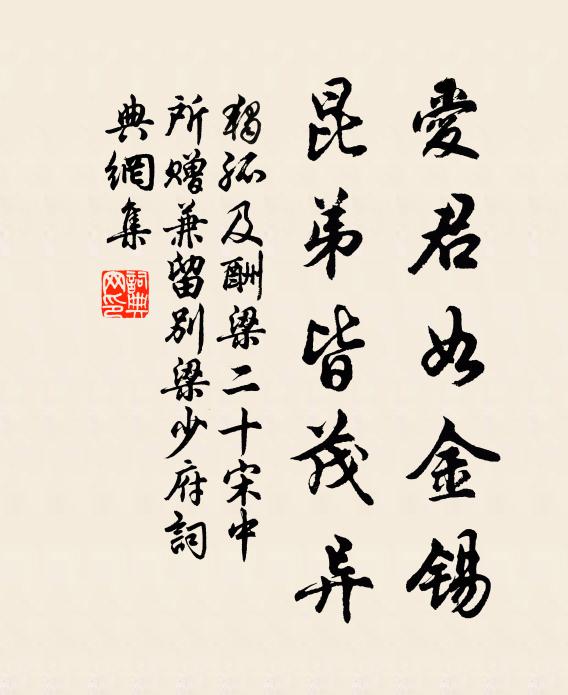 愛君如金錫
昆弟皆茂异
獨孤及酬梁二十宋中
所贈兼留別梁少府詞
典網集
詞典網印